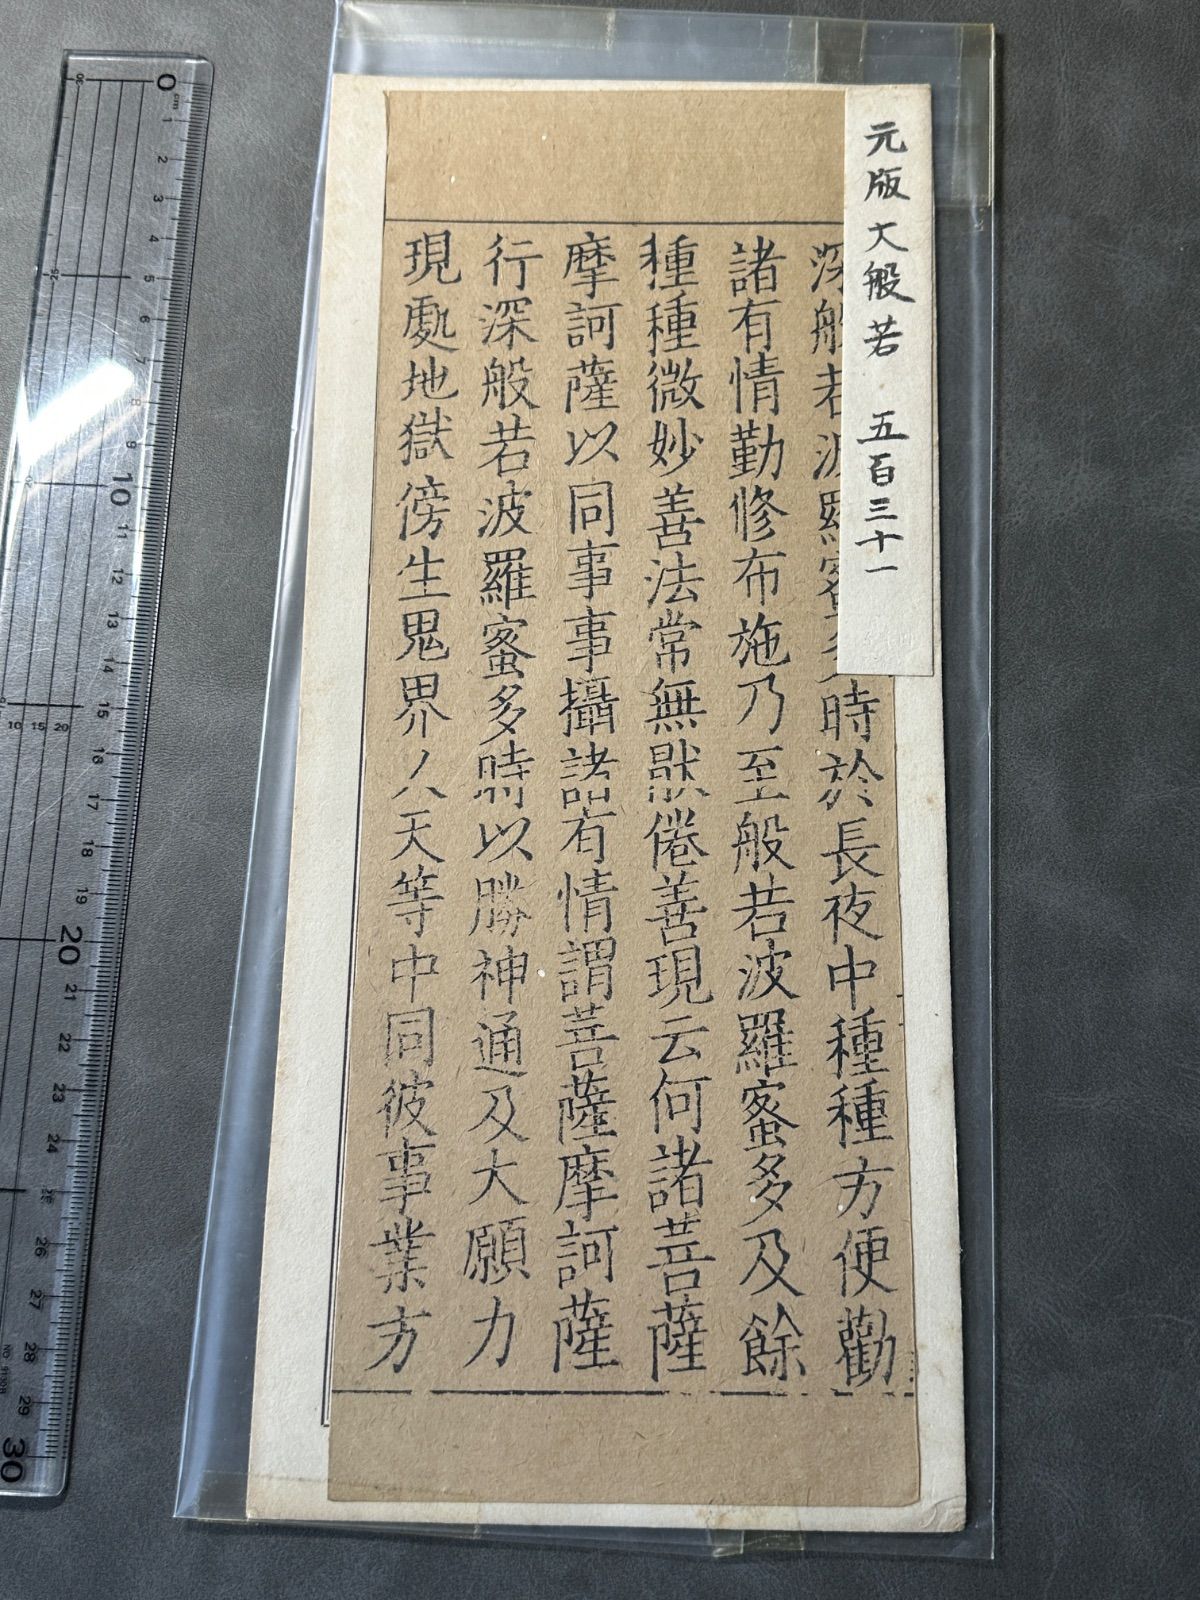 元版大般若 五百三十一
深般若波羅蜜多時於長夜中種種方便勸
諸有情勤修布施乃至般若波羅蜜多及餘
種種微妙善法常無猒倦善現云何諸菩薩
摩訶薩以同事事攝諸有情謂菩薩摩訶薩
行深般若波羅蜜多時以勝神通及大願力
現處地獄傍生鬼界人天等中同彼事業方
0 cm 1 2 3 4 5 6 7 8 9 10 11 12 13 14 15 16 17 18 19 20 21 22 23 24 25 26 27 28 29 30
10 15 20